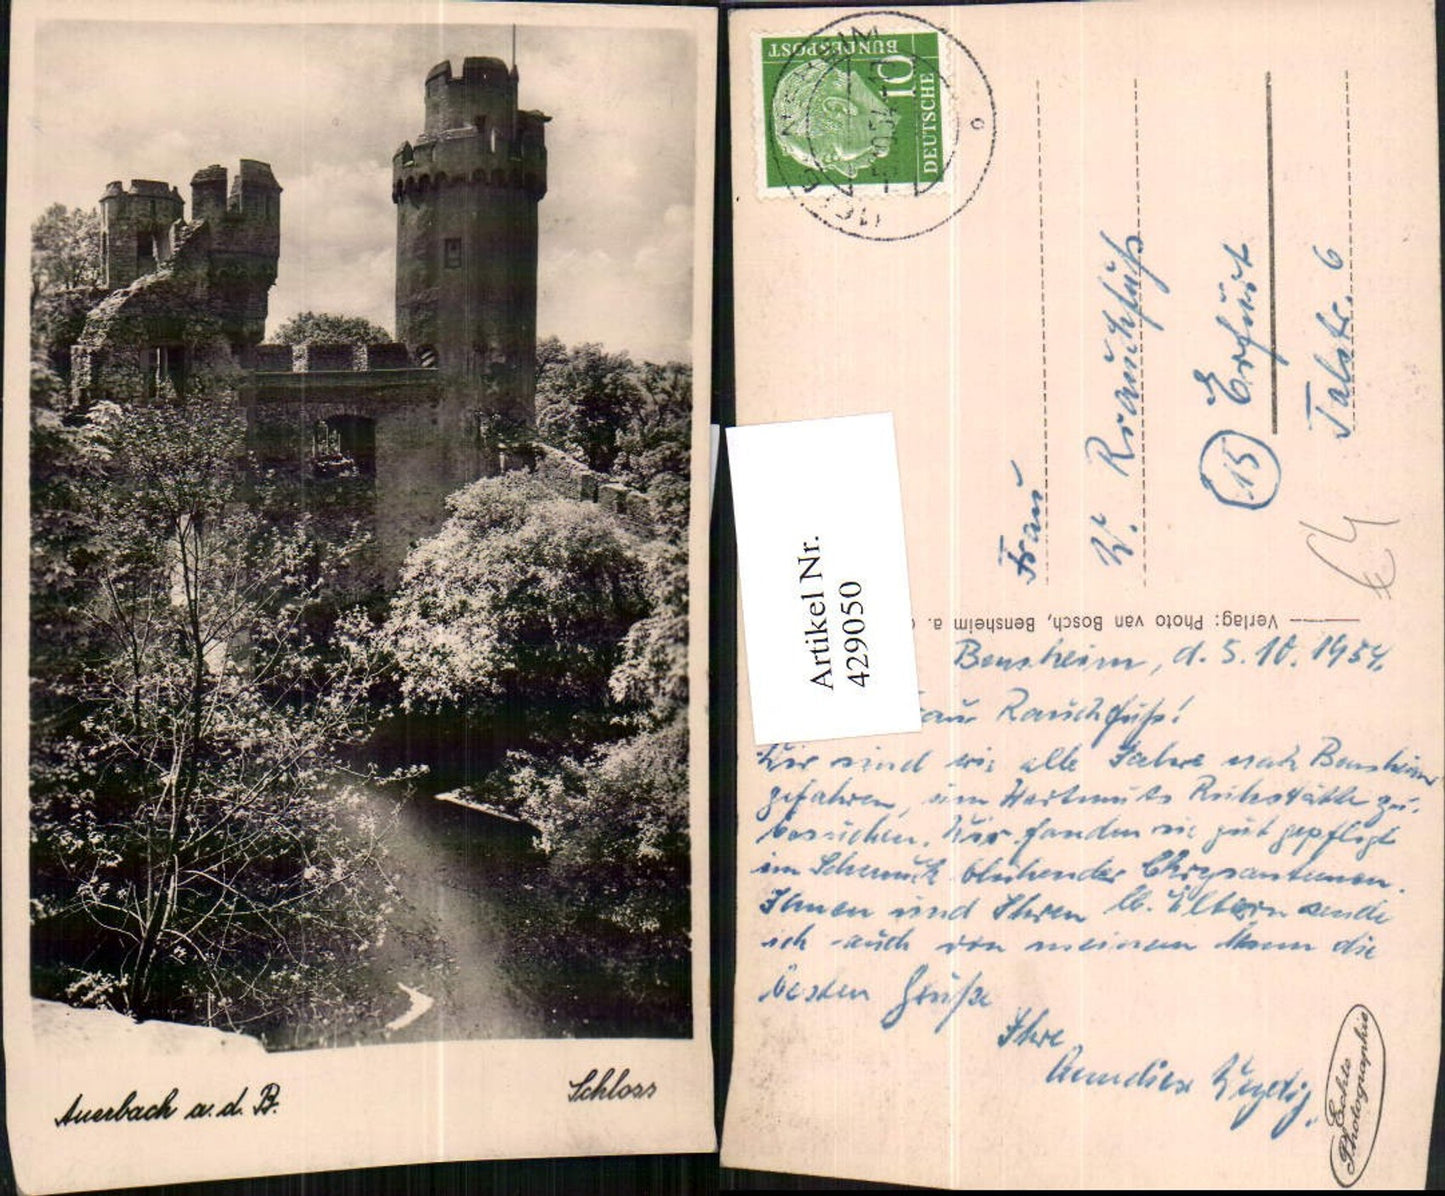 Auerbach a. d. B.
Schloss
DEUTSCHE
BUNDESPOST
10
Artikel Nr.
429050
Frau
W. Rauchfuß
(15) Erfurt
Talstr. 6
Verlag: Photo van Bosch, Bensheim a.
Bensheim, d. 5.10.1954.
Rauchfuß!
Wir sind wie alle Jahre nach Bensheim
gefahren, um Hartmuts Ruhestätte zu
besuchen. Wir fanden sie gut gepflegt
im Schmuck blühender Chrysantemen.
Ihnen und Ihren lb. Eltern sende
ich auch von meinem Mann die
besten Grüße
Ihre
Echte
Photographie